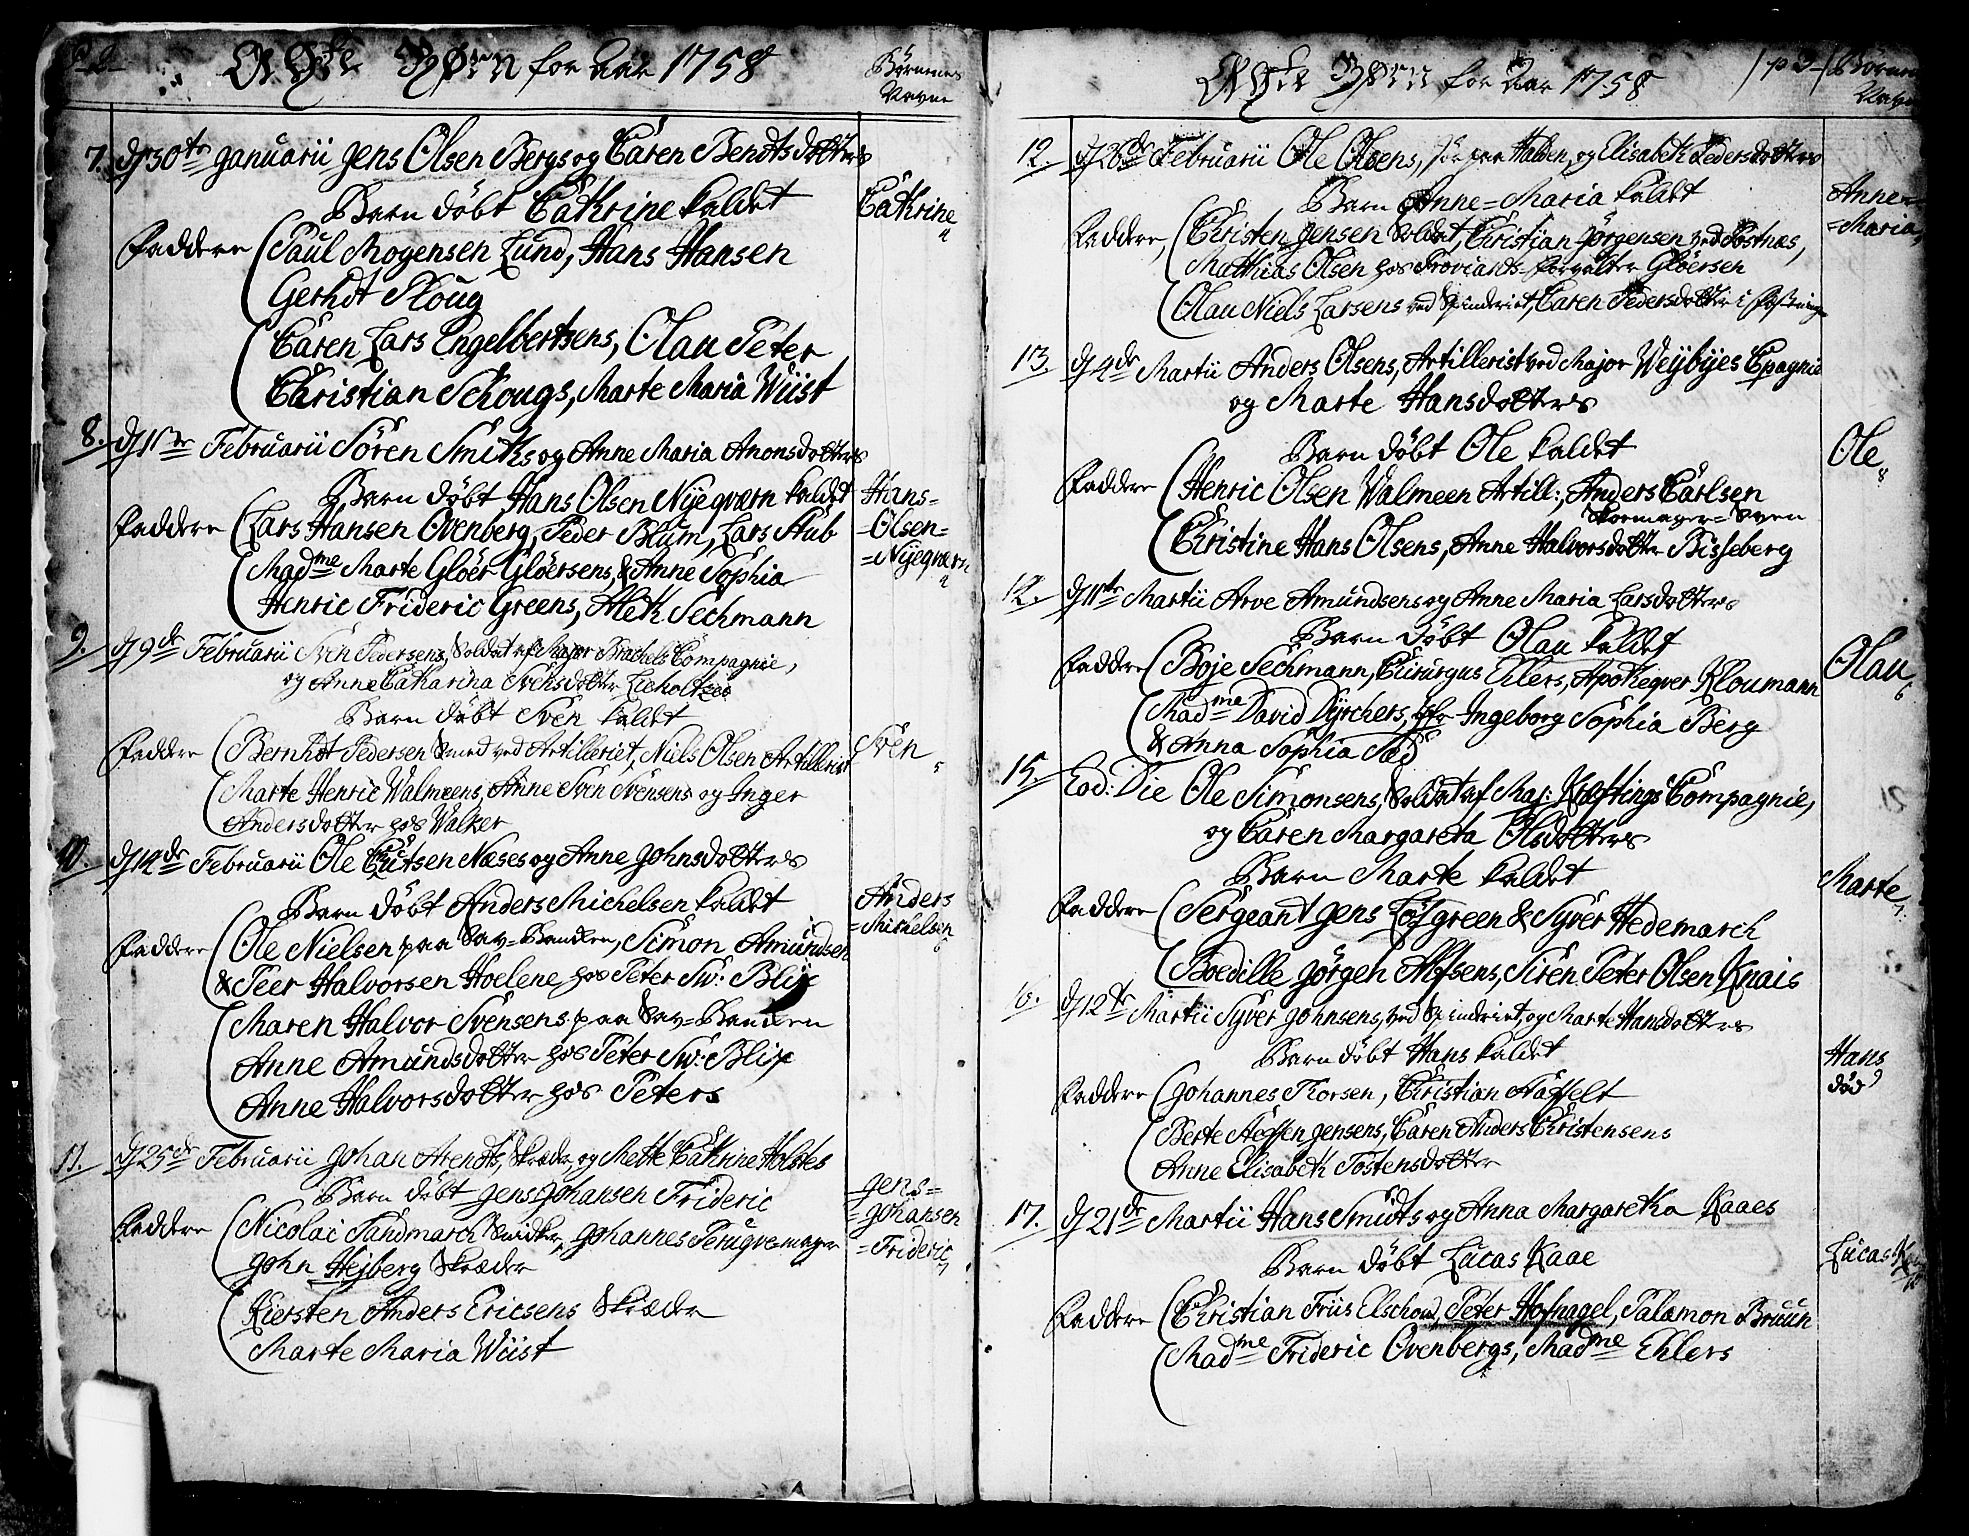 p 2
Ægte Børn for Aar 1758
Börnenes
Navne
7. d 30te Januarii Jens Olsen Bergs og Caren Bendtsdotters
Barn döbt Cathrine kaldet
Cathrine
Faddere (Paul Mogensen Lund, Hans Hansen
Gerhdt Ploug
(Caren Lars Engelbertsens, Olau Peter
Christian Schougs, Marte Maria Wüst
8. d 1ste Februarii Sören Smiths og Anne Maria Amonsdotters
Barn döbt Hans Olsen Nyeqværn kaldet
Hans=
=Olsen=
=Nyeqværn
Faddere (Lars Hansen Ovenberg, Peder Blum, Lars Stub
(Madme Marte Glöer Glöersens, & Anne Sophia
Henric Frideric Greens, Aleth Sechmann
9. d 9de Februarii Sven Pedersens, Soldat af Major Brachels Compagnie,
og Anne Catharina Svensdotter
Barn döbt Sven kaldet
Sven
Faddere (Bernhdt Pedersen Smed ved Artilleriet, Niels Olsen Artillerist
(Marte Henric Walmeens, Anne Sven Svensens og Inger
Andersdotter hos Walker
10. d 14de Februarii Ole Cutsen Næses og Anne Johnsdotters
Barn döbt Anders Michelsen kaldet
Anders
=Michelsen
Faddere (Ole Nielsen paa Sav=Banken, Simon Amundsen
& Peer Halvorsen Hoelene hos Peter Sw: Blix
(Maren Halvor Svensens paa Sav=Banken
Anne Amundsdotter hos Peter Sw: Blix
Anne Halvorsdotter hos Peters
11. d 25de Februarii Johan Arendts, Skræder, og Mette Cathrine Holstes
Barn döbt Jens Johansen Frideric
Jens=
=Johansen
=Frideric
Faddere (Nicolai Sandmarch Snidker, Johannes Perugvemager
John Hejberg Skræder
(Kiersten Anders Ericsens Skræder
Marte Maria Wüst
Ægte Børn for Aar 1758
/p 3/
Börnenes
Navne
12. d 26de Februarii Ole Olsens, og Elisabeth Pedersdotters
Barn Anne=Maria kaldet
Anne=
=Maria
Faddere, (Christen Jensen Soldat, Christian Jörgensen ved Fostnæs,
Matthias Olsen hos Proviant=Forvalter Glöersen
(Olau Niels Larsens ved Spinderiet, Caren Pedersdotter i Fæstningen
13. d 4de Martii Anders Olsens, Artillerist ved Major Weybyes Cpagnie
og Marte Hansdotters
Barn döbt Ole kaldet
Ole
Faddere (Henric Olsen Walmeen Artill:, Anders Carlsen
Skoemager=Sven
(Christine Hans Olsens, Anne Halvorsdotter Bisseberg
12. d 11te Martii Arve Amundsens og Anne Maria Larsdotters
Barn döbt Olau kaldet
Olau
Faddere (Boje Sechmann, Chirurgus Ehlers, Apotheqver Kloumann
(Madme David Dyrchers, Jfr Ingeborg Sophia Berg
& Anna Sophia Sæd
15. Eod: Die Ole Simonsens, Soldat af Maj: Kraftings Compagnie,
og Caren Margareta Olsdotters
Barn Marte kaldet
Marte
Faddere (Sergeant Jens Löfgreen & Syver Hedemarch
(Boedille Jörgen Alfsens, Siren Peter Olsen Knais
16. d 12te Martii Syver Johnsens, ved Spinderiet, og Marte Hansdotters
Barn döbt Hans kaldet
Hans
död
Faddere (Johannes Thorsen, Christian Haffelt
(Berte Steffen Jensens, Caren Anders Christensens
Anne Elisabeth Tostensdotter
17. d 21de Martii Hans Smidts og Anna Margaretha Kaaes
Barn döbt Lucas Kaae
Lucas
Faddere (Christian Friis Elschou, Peter Hofnagel, Salamon Bruun
(Madme Frideric Ovenbergs, Madme Ehlers